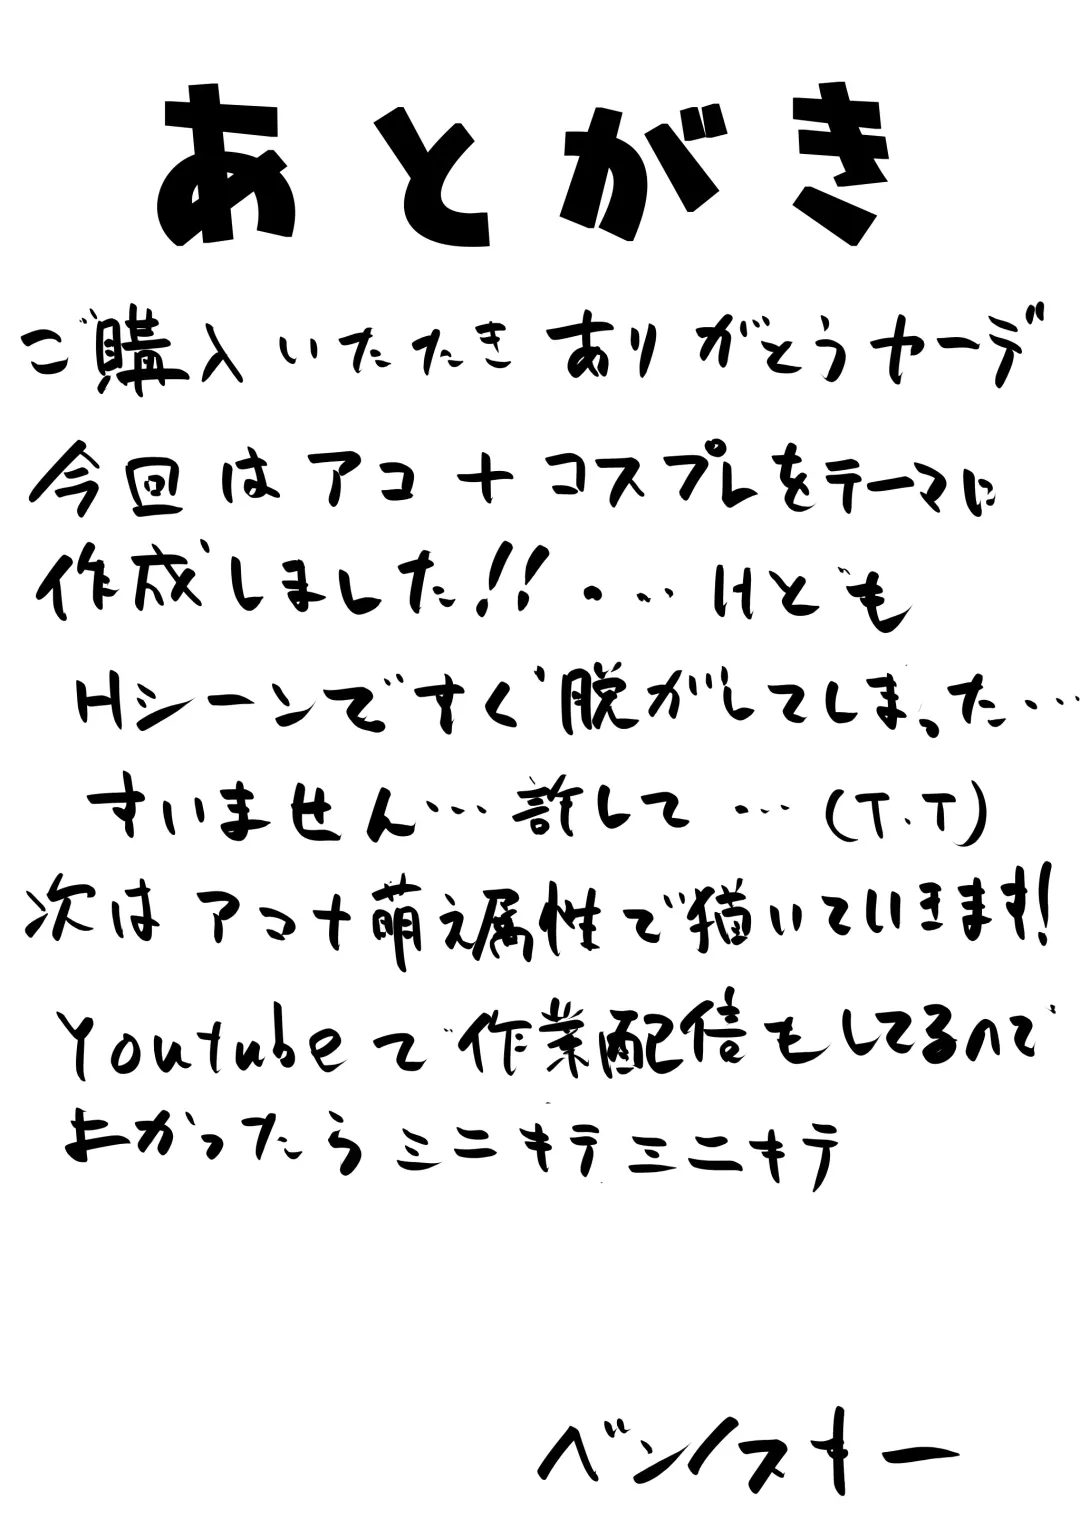 あとがき
ご購入いたたきありがとうヤーデ
今回はアコ+コスプレをテーマに
作成しました!!・…Hども
Hシーンですぐ脱がしてしまった…
すいません…許して…(T.T)
次はアコ+萌え属性で描いていきます!
Youtubeで作業配信もしてるので
よかったらミニキテミニキテ
ベンノスキー